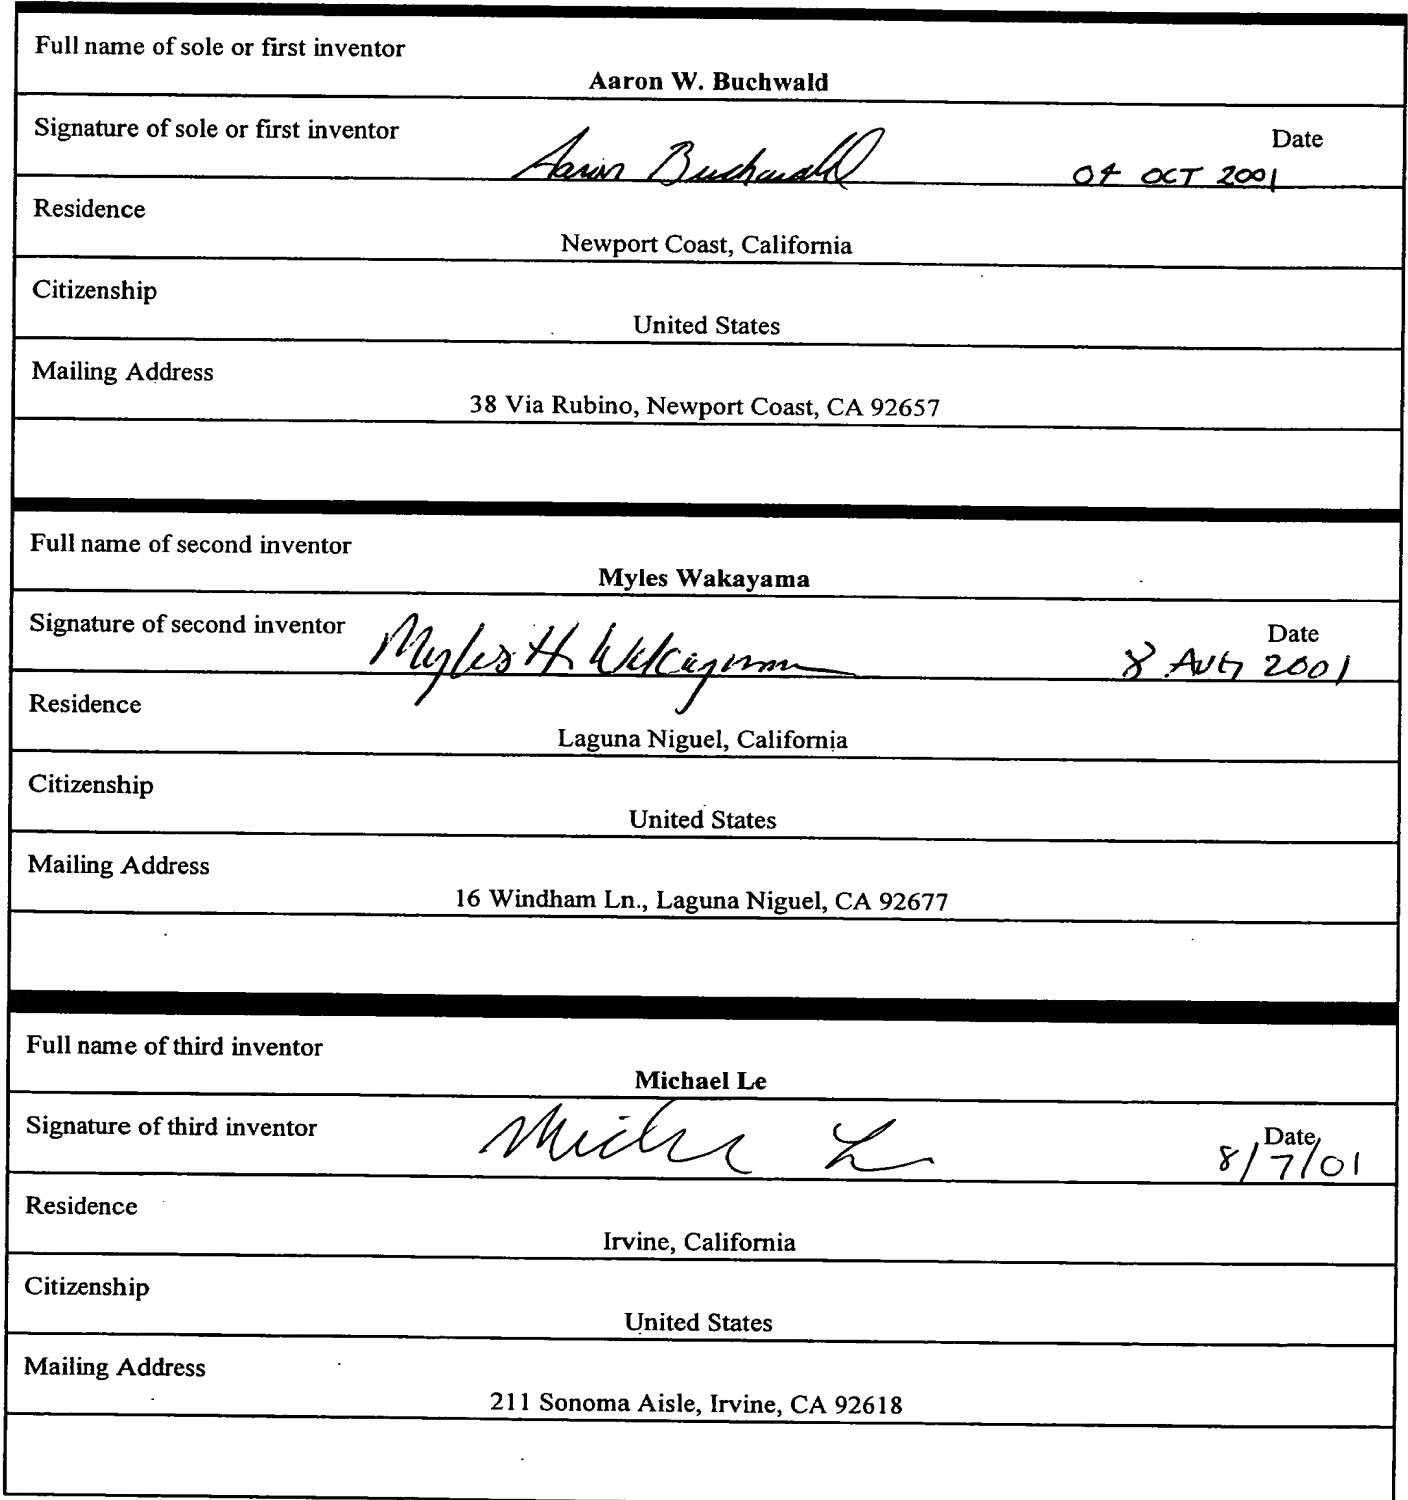 Full name of sole or first inventor
Aaron W. Buchwald
Signature of sole or first inventor
Aaron Buchwald
Date
04 OCT 2001
Residence
Newport Coast, California
Citizenship
United States
Mailing Address
38 Via Rubino, Newport Coast, CA 92657
Full name of second inventor
Myles Wakayama
Signature of second inventor
Myles H. Wakayama
Date
8 AUG 2001
Residence
Laguna Niguel, California
Citizenship
United States
Mailing Address
16 Windham Ln., Laguna Niguel, CA 92677
Full name of third inventor
Michael Le
Signature of third inventor
Michael Le
Date
8/7/01
Residence
Irvine, California
Citizenship
United States
Mailing Address
211 Sonoma Aisle, Irvine, CA 92618